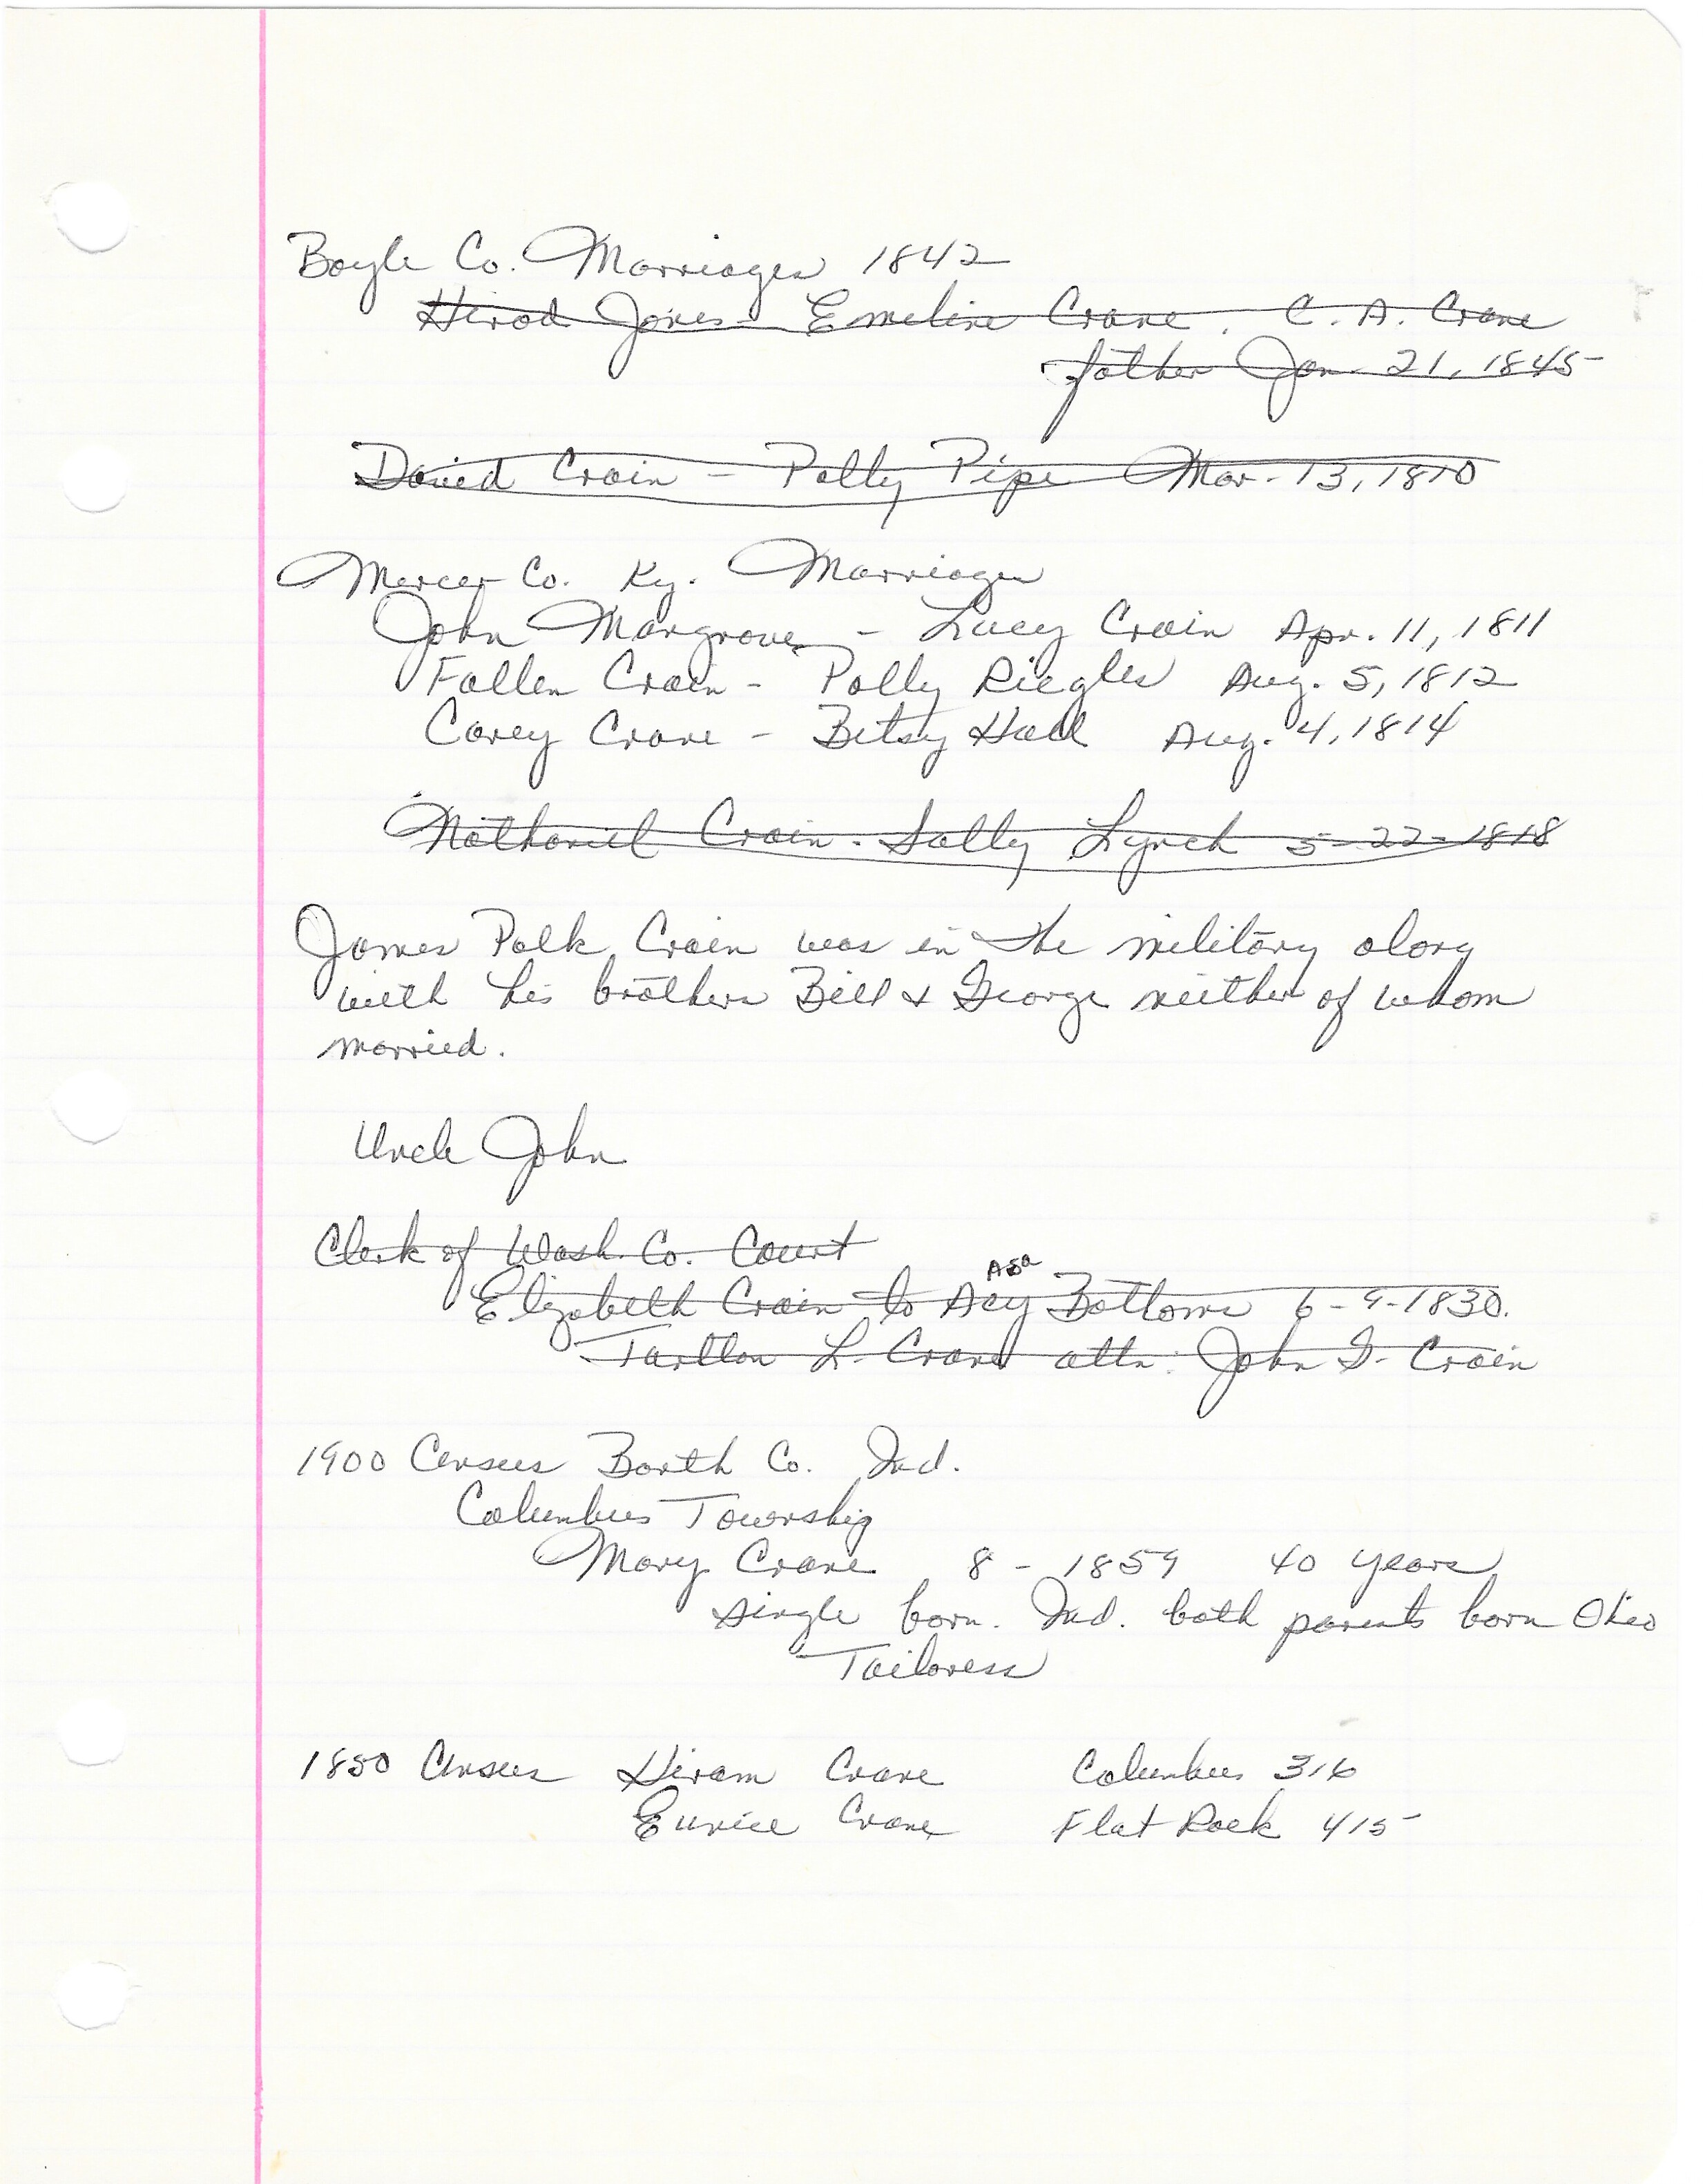 Boyle Co. Marriages 1842
Hirod Jones - Emeline Crane. C. A. Crane
father Jan. 21, 1845
David Crain - Polly Pipe Mar. 13, 1810
Mercer Co. Ky. Marriages
John Margrove - Lucy Crain Apr. 11, 1811
Fallen Crain - Polly Riegles Aug. 5, 1812
Carey Crane - Betsy Hall Aug. 4, 1814
Nathaniel Crain - Sally Lynch 5-22-1818
James Polk Crain was in the military along
with his brothers Bill & George neither of whom
married.
Uncle John
Clerk of Wash. Co. Court
Asa
Elizabeth Crain to Acy Bottoms 6-9-1830.
Tarlton L. Crane attn: John G. Crain
1900 Census Barth Co. Ind.
Columbus Township
Mary Crane 8 - 1859 40 years
single born. Ind. both parents born Ohio
Tailoress
1850 Census Hiram Crane Columbus 316
Eunice Crane Flat Rock 415